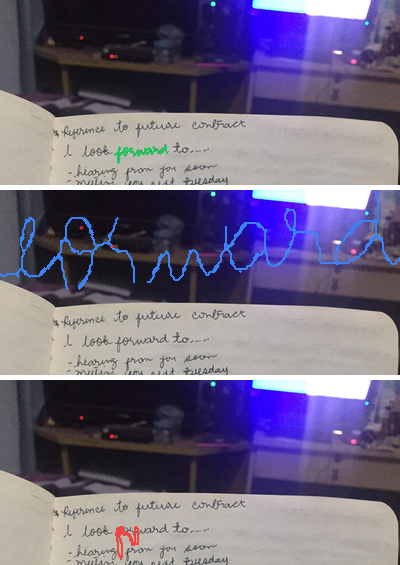 * Reference to future contract
I look forward to.....
- hearing from you soon
- meeting you next tuesday
* Reference to future contract
I look forward to.....
- hearing from you soon
- meeting you next tuesday
* Reference to future contract
I look forward to.....
- hearing from you soon
- meeting you next tuesday